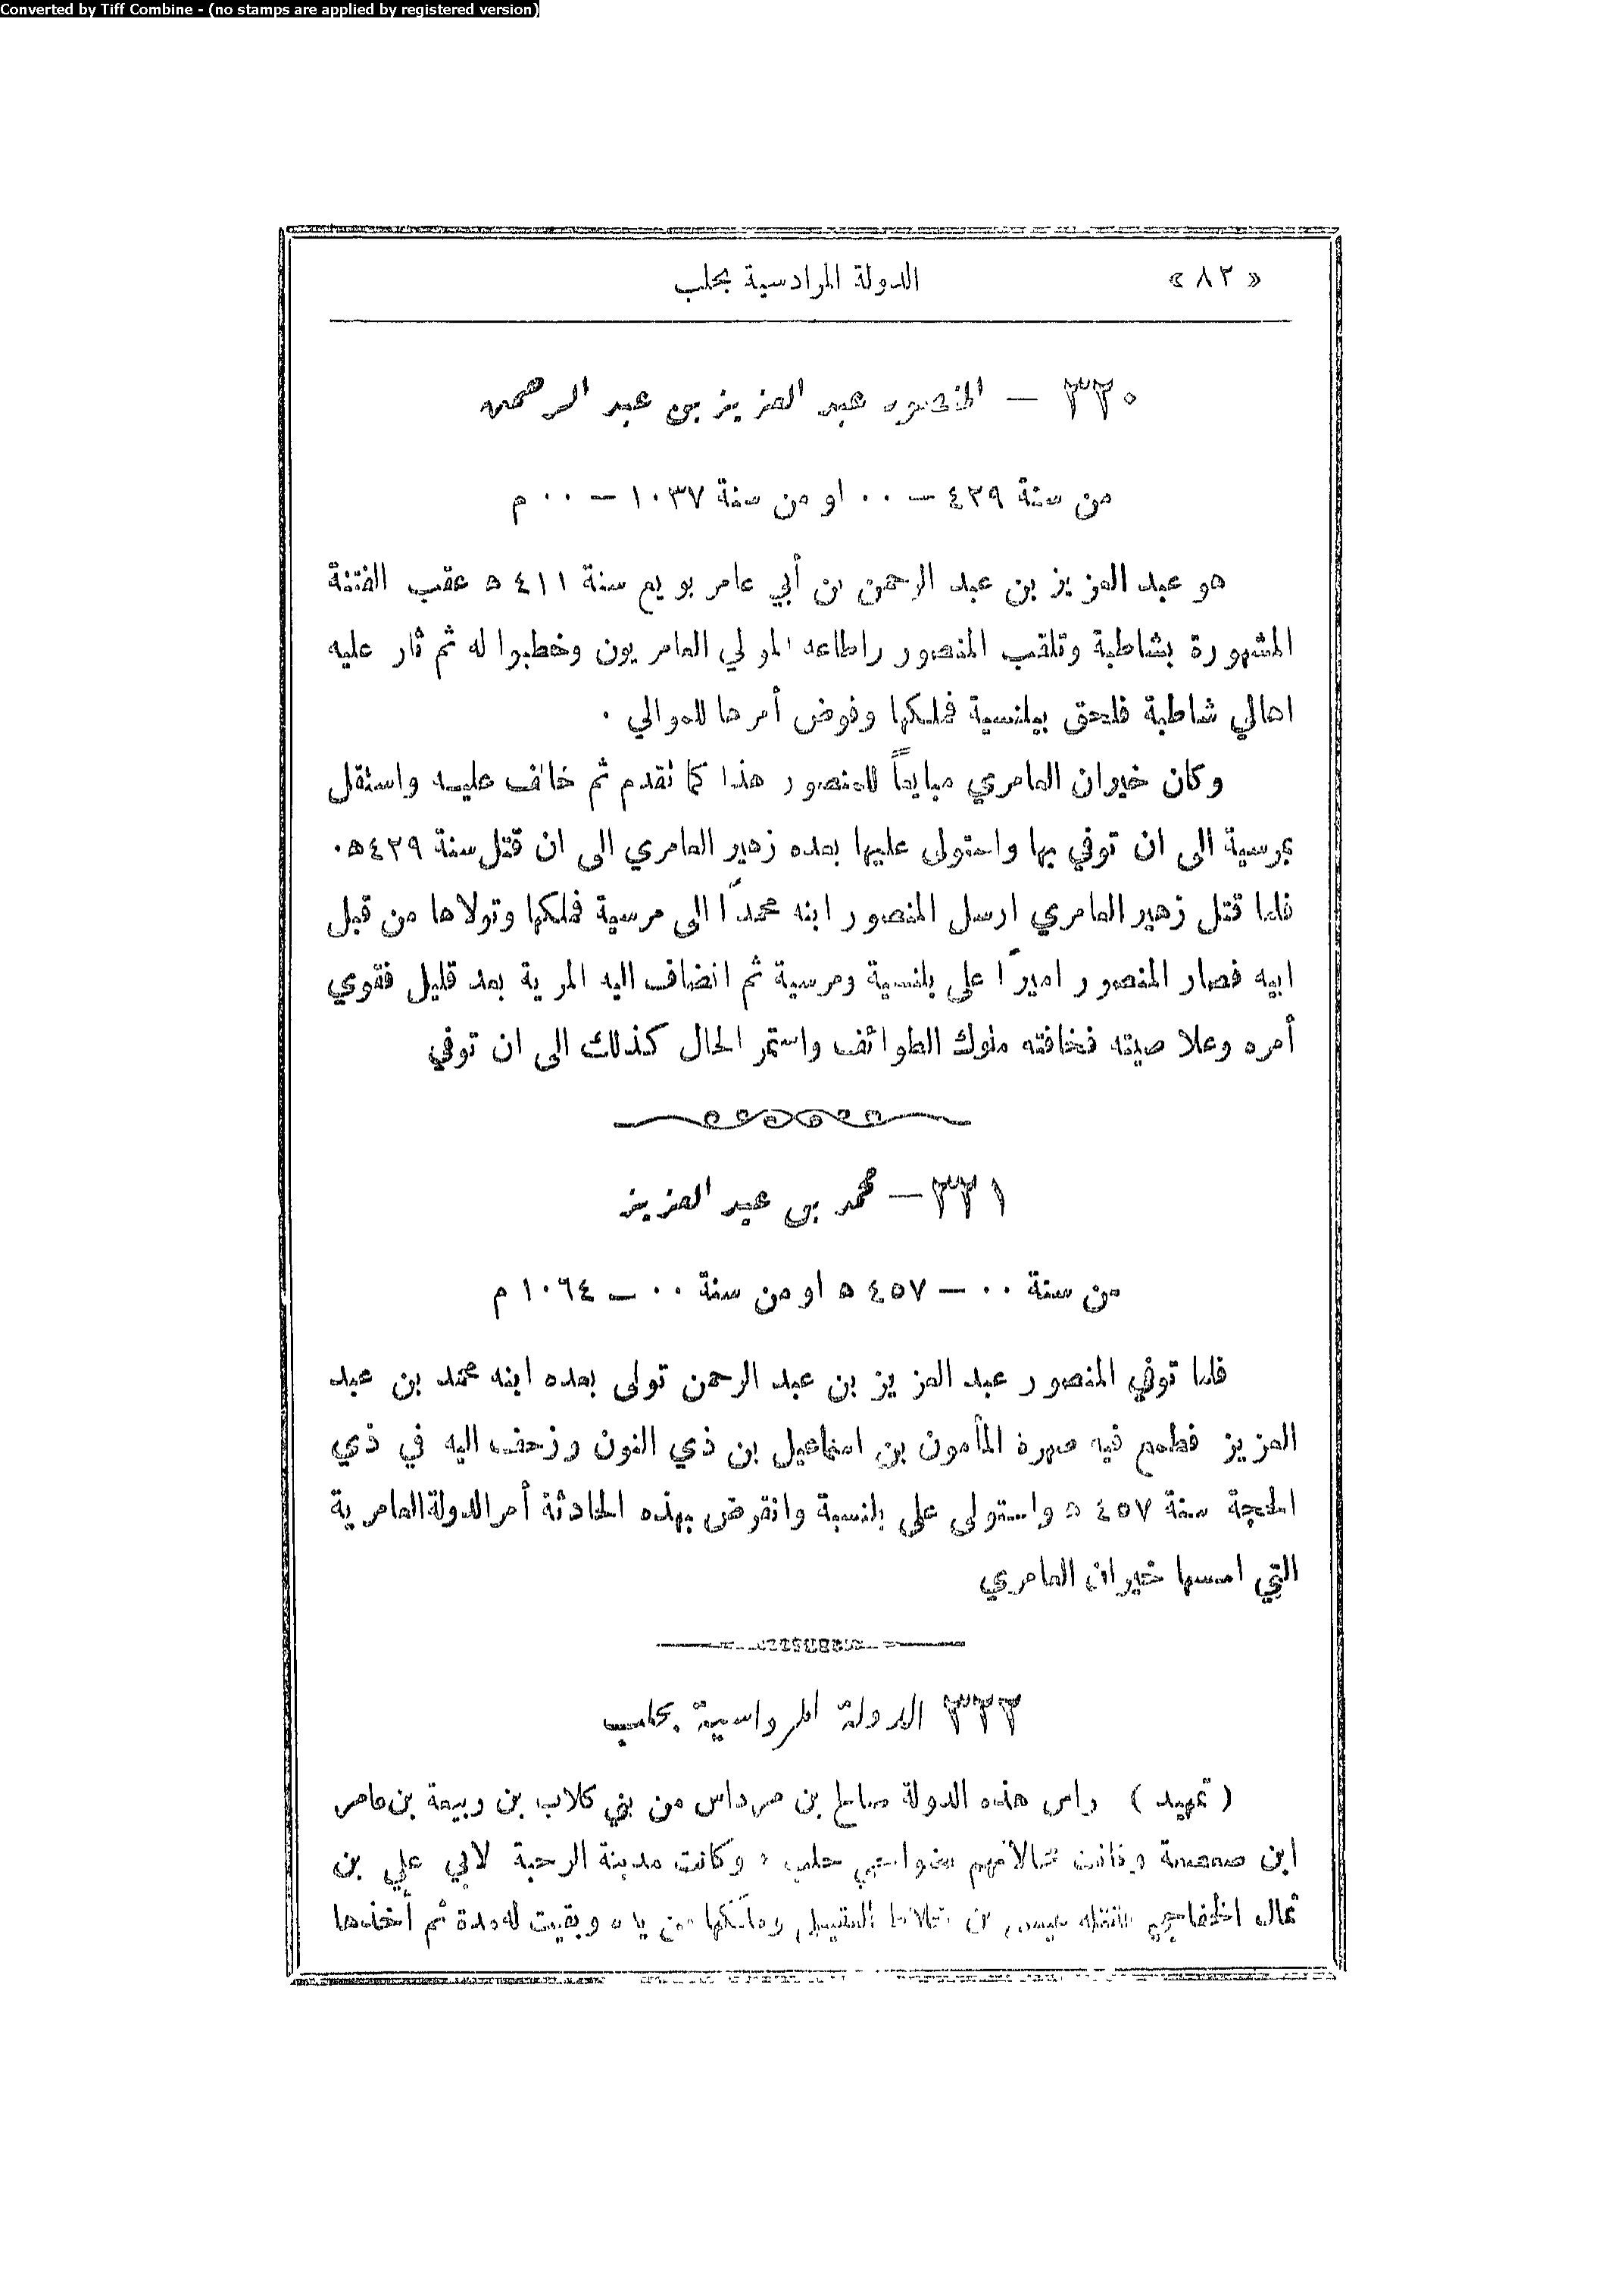 Converted by Tiff Combine - (no stamps are applied by registered version)
« ٨٢ » الدولة المرادسية بحلب
٣٣٠ — المنصور عبد العزيز بن عبد الرحمن
من سنة ٤٢٩ — ٠٠ او من سنة ١٠٣٧ — ٠٠ م
هو عبد العزيز بن عبد الرحمن بن أبي عامر بويع سنة ٤١١ ه عقب الفتنة
المشهورة بشاطبة وتلقب المنصور واطاعه الموالي العامريون وخطبوا له ثم ثار عليه
اهالي شاطبة فلحق ببلنسية فملكها وفوض أمرها للموالي .
وكان خيران العامري مبايعاً للمنصور هذا كما تقدم ثم خالف عليه واستقل
بمرسية الى ان توفي بها واستولى عليها بعده زهير العامري الى ان قتل سنة ٤٢٩ه .
فلما قتل زهير العامري ارسل المنصور ابنه محمدًا الى مرسية فملكها وتولاها من قبل
ابيه فصار المنصور اميرًا على بلنسية ومرسية ثم انضاف اليه المرية بعد قليل فقوي
أمره وعلا صيته فخافته ملوك الطوائف واستمر الحال كذلك الى ان توفي
٣٣١ — محمد بن عبد العزيز
من سنة ٠٠ — ٤٥٧ ه او من سنة ٠٠ — ١٠٦٤ م
فلما توفي المنصور عبد العزيز بن عبد الرحمن تولى بعده ابنه محمد بن عبد
العزيز فطمع فيه صهره المأمون بن اسماعيل بن ذي النون وزحف اليه في ذي
الحجة سنة ٤٥٧ ه واستولى على بلنسية وانقرض بهذه الحادثة أمر الدولة العامرية
التي اسسها خيران العامري
٣٣٢ الدولة المرداسية بحلب
( تمهيد ) راس هذه الدولة صالح بن مرداس من بني كلاب بن ربيعة بن عامر
ابن صعصعة وكانت مجالاتهم بنواحي حلب . وكانت مدينة الرحبة لابي علي بن
ثمال الخفاجي فقتله عيسى بن خلاط العقيلي وملكها من يده وبقيت له مدة ثم أخذها